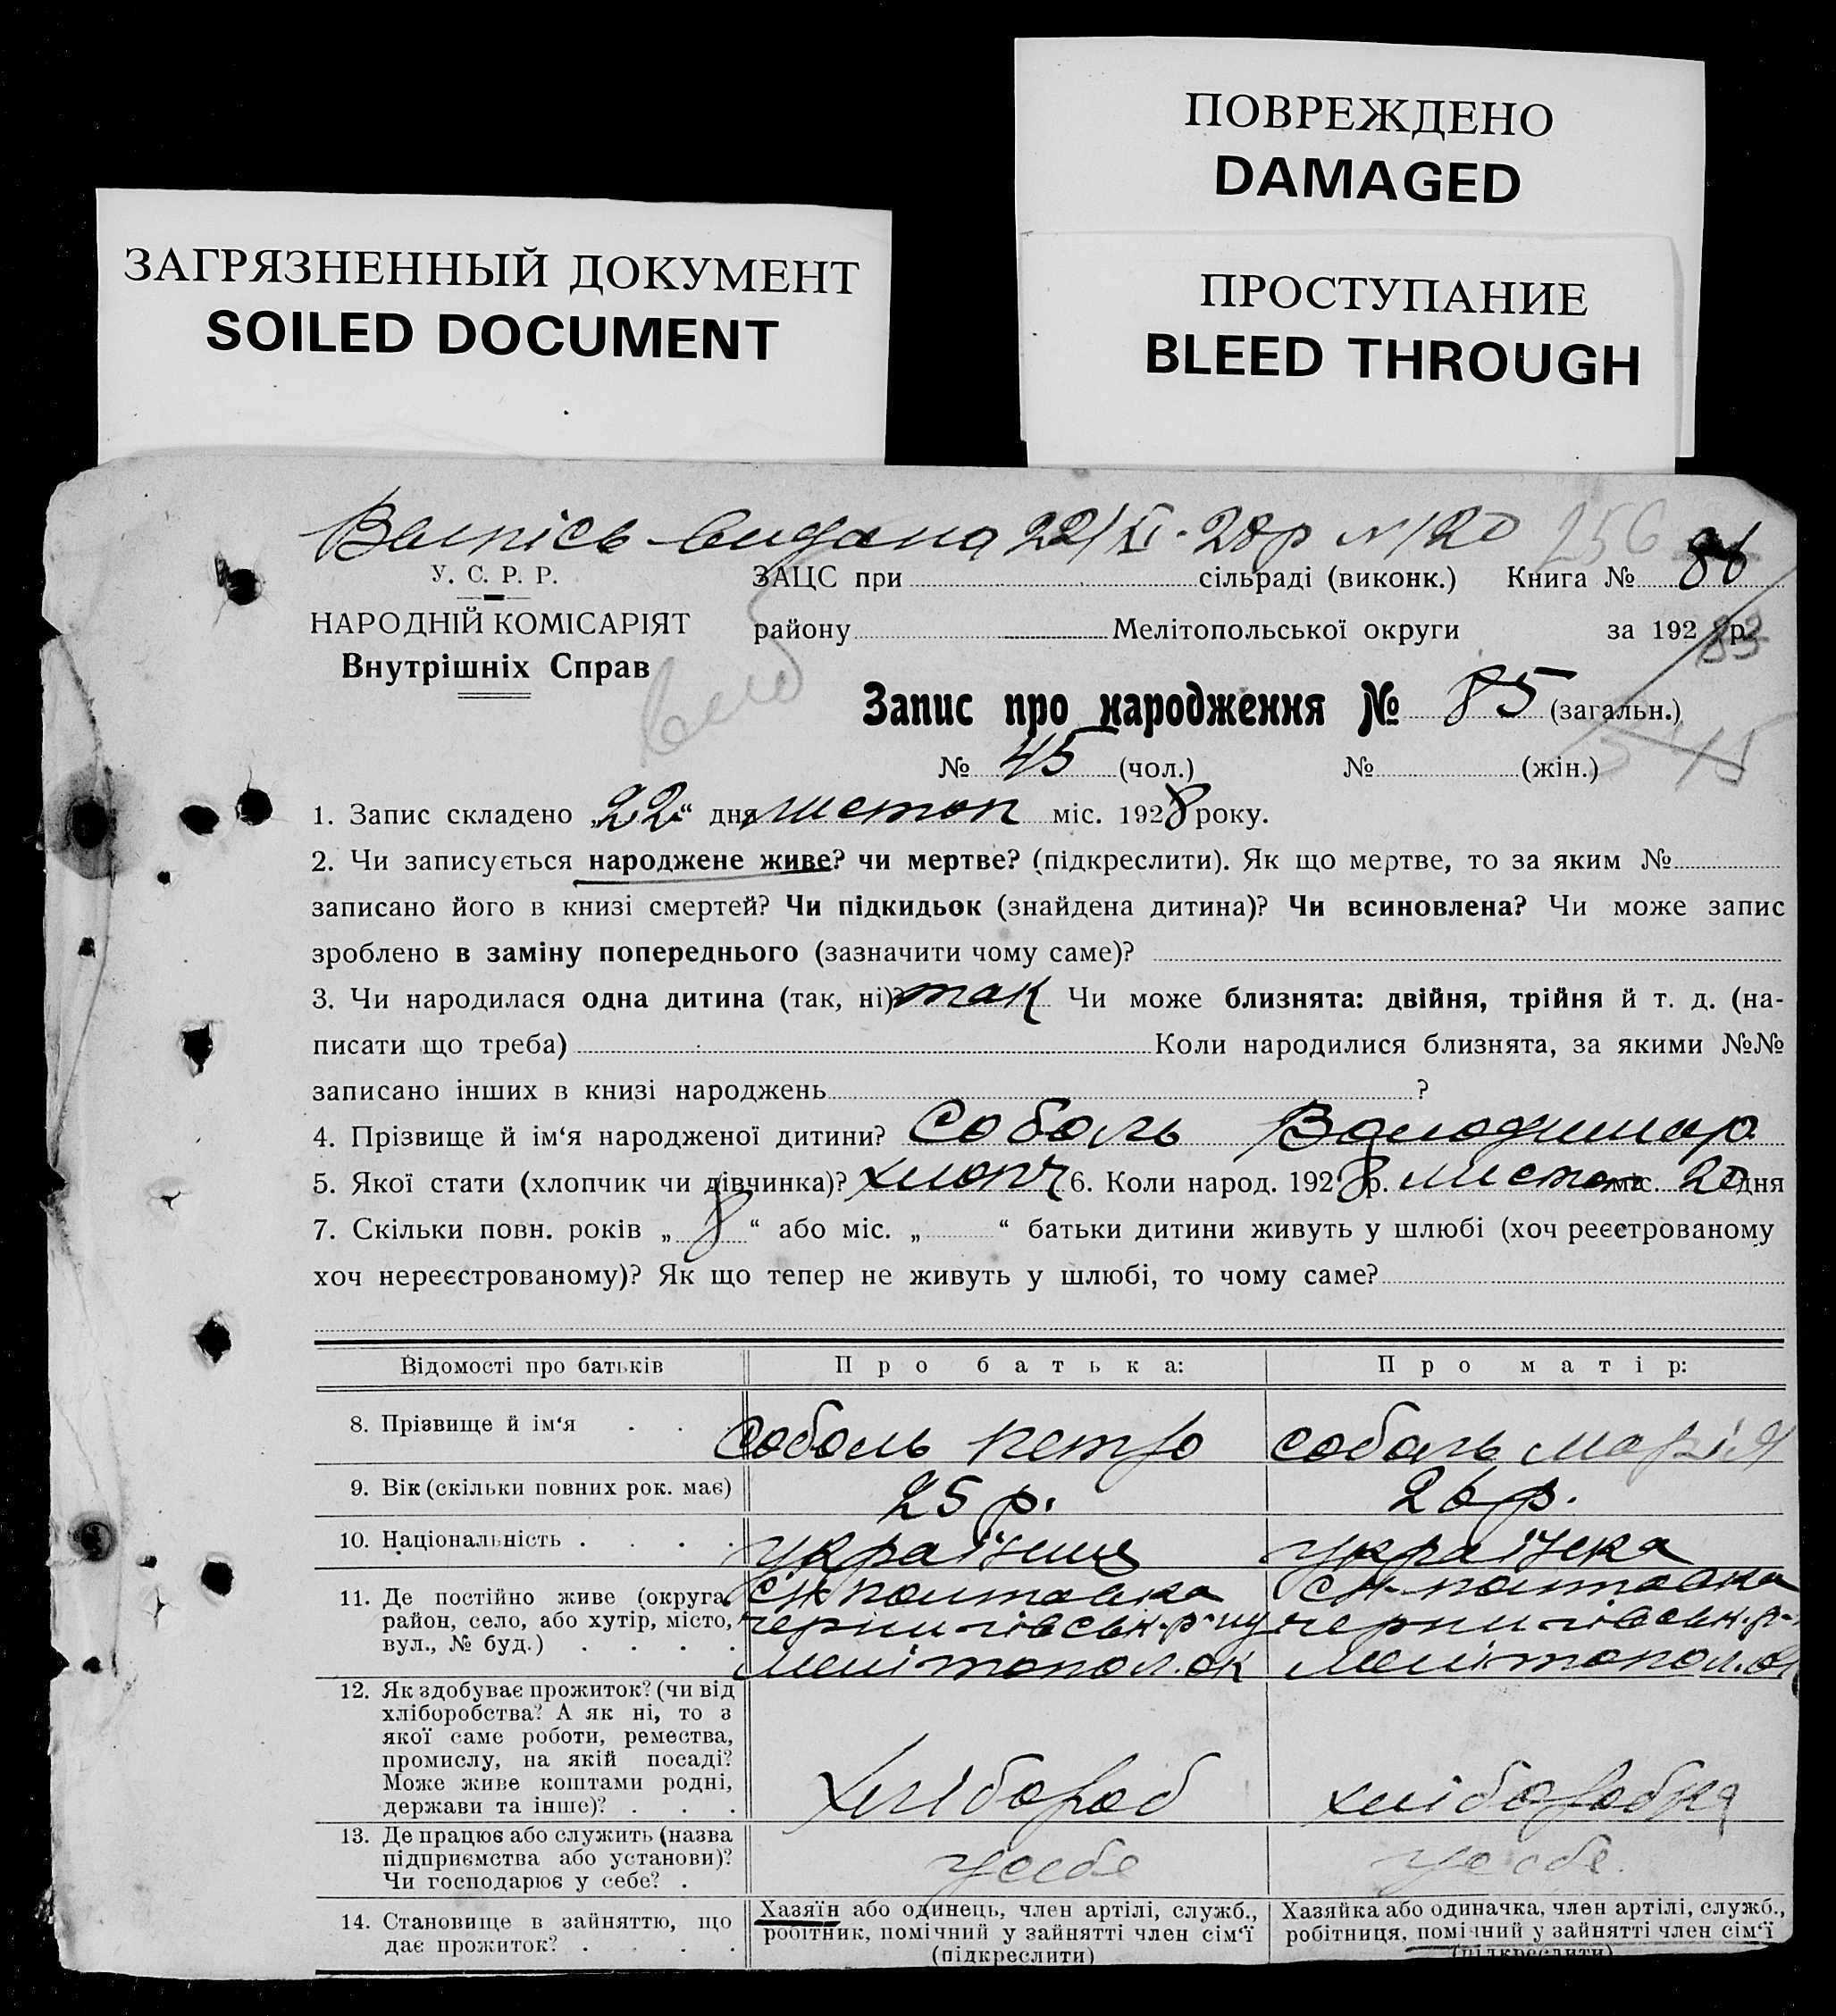 ПОВРЕЖДЕНО
DAMAGED
ЗАГРЯЗНЕННЫЙ ДОКУМЕНТ
SOILED DOCUMENT
ПРОСТУПАНИЕ
BLEED THROUGH
Випісь видана 22/XI-28р №120 256
У. С. Р. Р.
ЗАЦС при сільраді (виконк.) Книга № 86
НАРОДНІЙ КОМІСАРІЯТ
району Мелітопольської округи за 192 р.
83
Внутрішніх Справ
Запис про народження № 85 (загальн.)
№ 45 (чол.) № (жін.)
1. Запис складено „22“ дня листоп міс. 1928 року.
2. Чи записується народжене живе? чи мертве? (підкреслити). Як що мертве, то за яким №
записано його в книзі смертей? Чи підкидьок (знайдена дитина)? Чи всиновлена? Чи може запис
зроблено в заміну попереднього (зазначити чому саме)?
3. Чи народилася одна дитина (так, ні)? так Чи може близнята: двійня, трійня й т. д. (на-
писати що треба) Коли народилися близнята, за якими №№
записано інших в книзі народжень ?
4. Прізвище й ім‘я народженої дитини? Соболь Володимир
5. Якої стати (хлопчик чи дівчинка)? хлопч 6. Коли народ. 1928 р. листоп міс. 20 дня
7. Скільки повн. років „ 8 “ або міс. „ “ батьки дитини живуть у шлюбі (хоч реєстрованому
хоч нереєстрованому)? Як що тепер не живуть у шлюбі, то чому саме?
Відомості про батьків Про батька: Про матір:
8. Прізвище й ім‘я . . Соболь Петро Соболь Марія
9. Вік (скільки повних рок. має) 25 р. 26 р.
10. Національність . . . . українец українка
11. Де постійно живе (округа, район, село, або хутір, місто, вул., № буд.) . . . .
с. Полтавка
чернигівськ. р-ну
мелітопол. ок
с. Полтавка
чернигівськ. р-
мелітопол. ок
12. Як здобуває прожиток? (чи від
хліборобства? А як ні, то з
якої саме роботи, ремества,
промислу, на якій посаді?
Може живе коштами родні,
держави та інше)? . . .
хлібороб хліборобка
13. Де працює або служить (назва
підприємства або установи)?
Чи господарює у себе? .
у себе у себе.
14. Становище в зайняттю, що
дає прожиток? . . . .
Хазяїн або одинець, член артілі, служб.,
робітник, помічний у зайнятті член сім‘ї
(підкреслити)
Хазяйка або одиначка, член артілі, служб.,
робітниця, помічний у зайнятті член сім‘ї
(підкреслити)